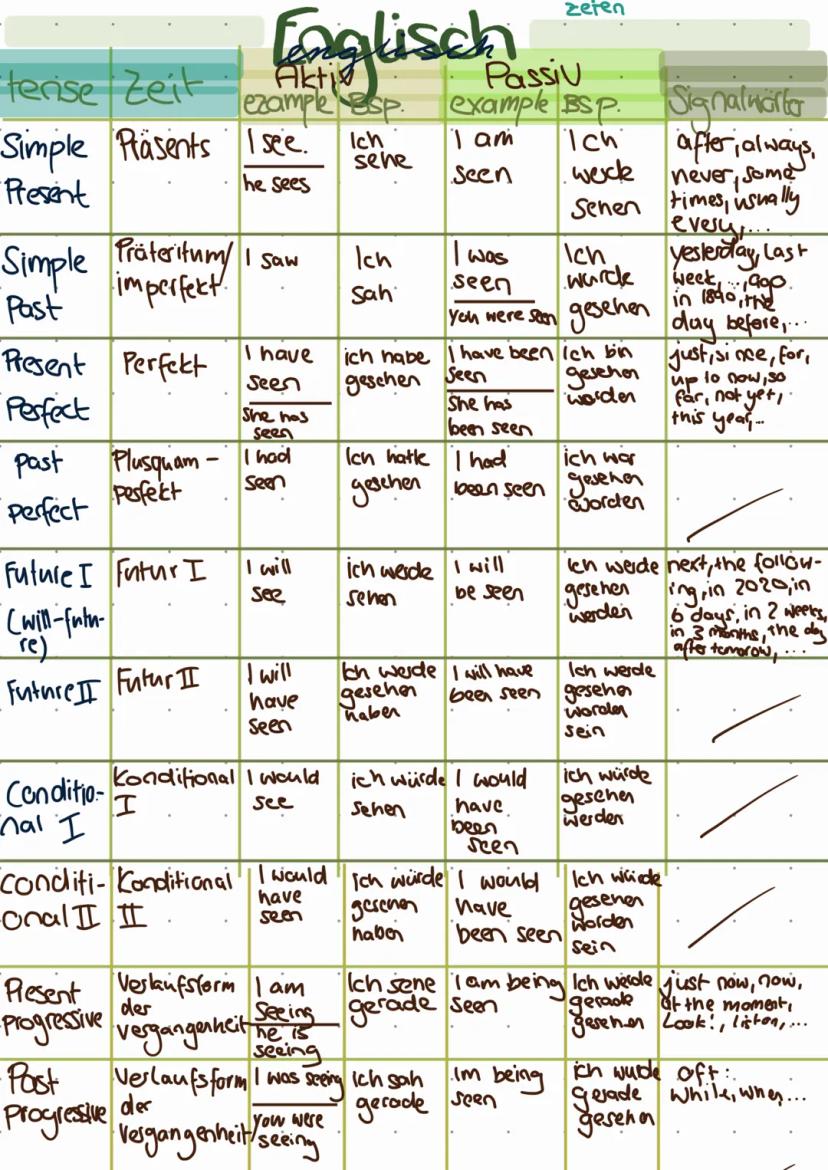 zeiten
Englisch
englisch
Aktiv
Passiv
tense
Zeit
example
Bsp.
example
BSP.
Signalwörter
Simple
Present
Präsents
I see.
he sees
Ich
sehe
I am
seen
Ich
werde
sehen
after, always,
never, some
times, usually
every,...
Simple
Past
Präteritum/
imperfekt
I saw
Ich
sah
I was
seen
you were seen
Ich
wurde
gesehen
yesterday, last
week,...,ago
in 1890, the
day before,...
Present
Perfect
Perfekt
I have
seen
She has
seen
ich habe
gesehen
I have been
seen
She has
been seen
Ich bin
gesehen
worden
just, since, for,
up to now, so
far, not yet,
this year,...
past
perfect
Plusquam-
perfekt
I had
seen
Ich hatte
gesehen
I had
been seen
ich war
gesehen
worden
Future I
(will-futu-
re)
Futur I
I will
see
ich werde
sehen
I will
be seen
Ich werde
gesehen
werden
next, the follow-
ing, in 2020, in
6 days, in 2 weeks,
in 3 months, the day
after tomorow, ...
Future II
Futur II
I will
have
seen
Ich werde
gesehen
haben
I will have
been seen
Ich werde
gesehen
worden
sein
Conditio-
nal I
Konditional
I
I would
see
ich würde
sehen
I would
have
been
seen
ich würde
gesehen
werden
Conditi-
onal II
Konditional
II
I would
have
seen
Ich würde
gesehen
haben
I would
have
been seen
Ich würde
gesehen
worden
sein
Present
progressive
Verlaufsform
der
vergangenheit
I am
Seeing
he is
seeing
Ich sehe
gerade
I am being
seen
Ich werde
gerade
gesehen
just now, now,
at the moment,
Look!, listen,...
Past
Progressive
Verlaufsform
der
Vergangenheit
I was seeing
you were
seeing
Ich sah
gerade
Im being
seen
ich wurde
gerade
gesehen
oft:
while, when...